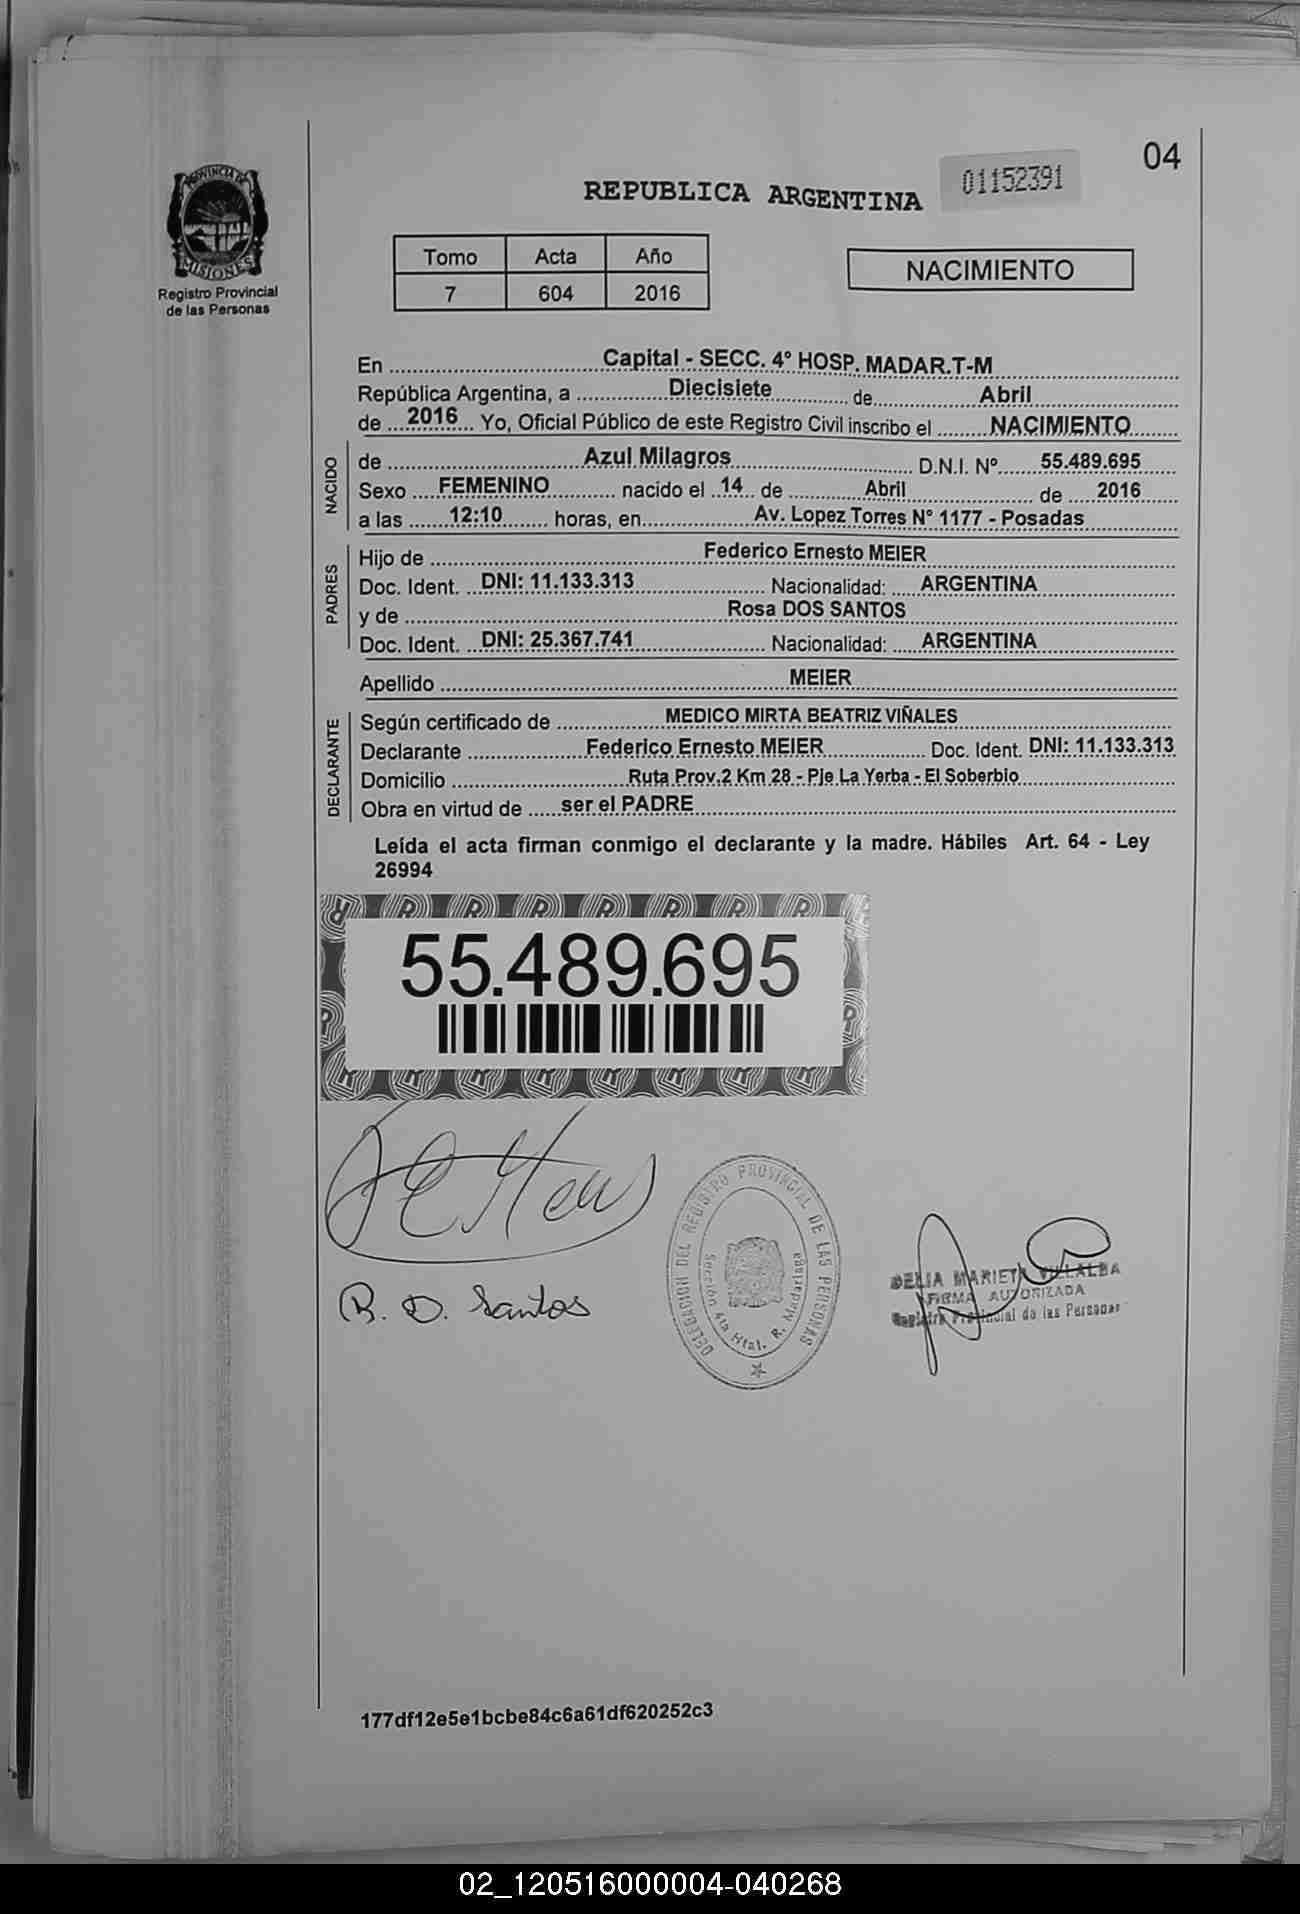 04
01152391
REPUBLICA ARGENTINA
PROVINCIA DE
MISIONES
Registro Provincial
de las Personas
Tomo Acta Año
7 604 2016
NACIMIENTO
En Capital - SECC. 4° HOSP. MADAR.T-M
República Argentina, a Diecisiete de Abril
de 2016 Yo, Oficial Público de este Registro Civil inscribo el NACIMIENTO
NACIDO
de Azul Milagros D.N.I. N° 55.489.695
Sexo FEMENINO nacido el 14 de Abril de 2016
a las 12:10 horas, en Av. Lopez Torres N° 1177 - Posadas
PADRES
Hijo de Federico Ernesto MEIER
Doc. Ident. DNI: 11.133.313 Nacionalidad: ARGENTINA
y de Rosa DOS SANTOS
Doc. Ident. DNI: 25.367.741 Nacionalidad: ARGENTINA
Apellido MEIER
DECLARANTE
Según certificado de MEDICO MIRTA BEATRIZ VIÑALES
Declarante Federico Ernesto MEIER Doc. Ident. DNI: 11.133.313
Domicilio Ruta Prov.2 Km 28 - Pje La Yerba - El Soberbio
Obra en virtud de ser el PADRE
Leída el acta firman conmigo el declarante y la madre. Hábiles Art. 64 - Ley
26994
55.489.695
R. D. Santos
DELEGACION DEL REGISTRO PROVINCIAL DE LAS PERSONAS
Sección 4ta Htal. R. Madariaga
DELIA MARIETA VILLALBA
FIRMA AUTORIZADA
Registro Provincial de las Personas
177df12e5e1bcbe84c6a61df620252c3
02_120516000004-040268